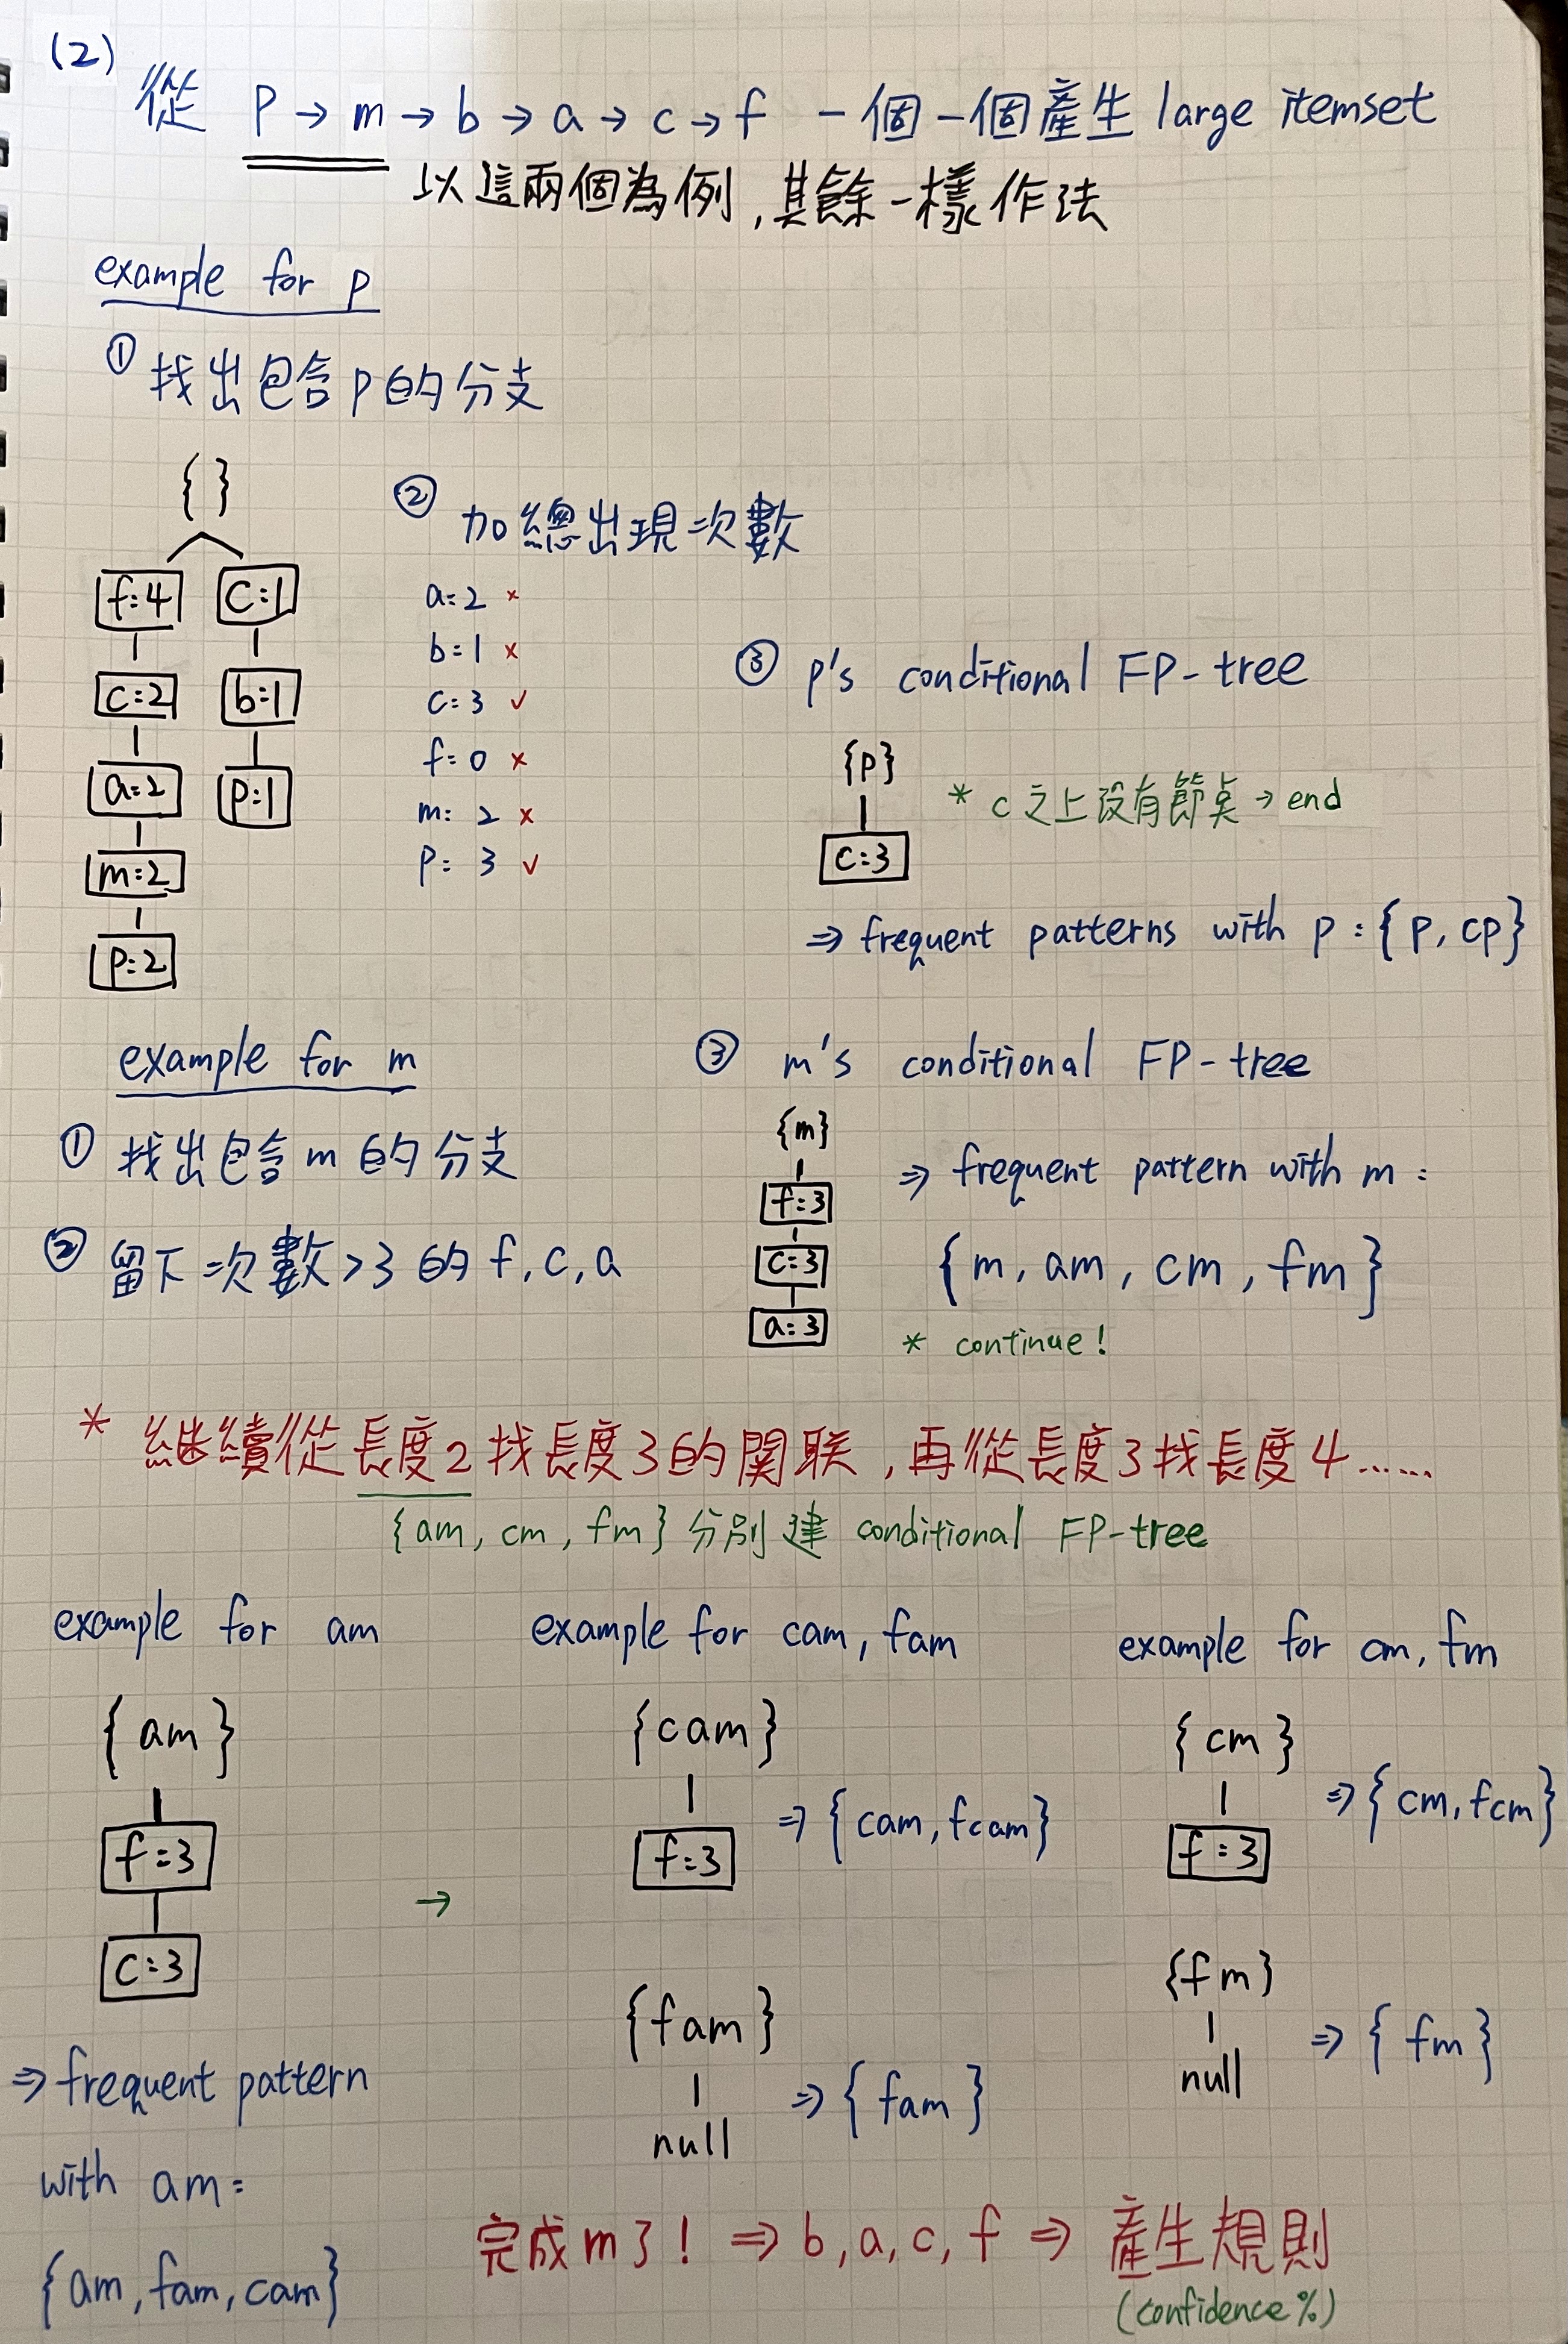 (2)
從 P → m → b → a → c → f 一個一個產生 large itemset
以這兩個為例,其餘一樣作法
example for p
① 找出包含p的分支
{ }
f:4 c:1
c:2 b:1
a:2 p:1
m:2
p:2
② 加總出現次數
a=2 ×
b=1 ×
c=3 ✓
f=0 ×
m: 2 ×
p= 3 ✓
③ p's conditional FP-tree
{p}
c:3
* c之上沒有節點 → end
⇒ frequent patterns with p : { p, cp }
example for m
① 找出包含m的分支
② 留下次數>3的f,c,a
③ m's conditional FP-tree
{m}
f:3
c:3
a:3
⇒ frequent pattern with m :
{ m, am, cm, fm }
* continue!
* 繼續從長度2找長度3的関联,再從長度3找長度4......
{am, cm, fm} 分別建 conditional FP-tree
example for am
{ am }
f:3
c:3
⇒ frequent pattern
with am =
{am, fam, cam}
→
example for cam, fam
{ cam }
f:3
⇒ { cam, fcam }
{ fam }
null
⇒ { fam }
example for cm, fm
{ cm }
f:3
⇒ { cm, fcm }
{fm}
null
⇒ { fm }
完成m了! ⇒ b, a, c, f ⇒ 產生規則
(confidence %)